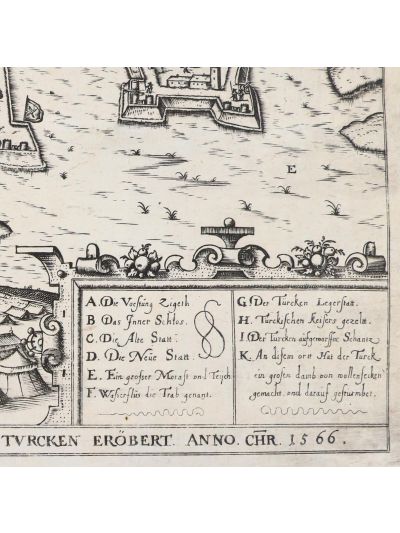 E
A. Die Vöestüng Zigeth
B Das Inner Schlos.
C. Die Alte Statt.
D. Die Neüe Statt.
E. Ein grosser Morast und Teÿch
F. Wasserflüs die Trab genant.
G. Der Türcken Legerstatt.
H. Türckischen Keisers gezelt.
I. Der Türcken aufgeworffne Schantz
K. An disem ort Hat der Türck
ein grosen damb von wollensecken
gemacht, und darauf gestürmbet.
TVRCKEN ERÖBERT. ANNO. CHR. 1566.